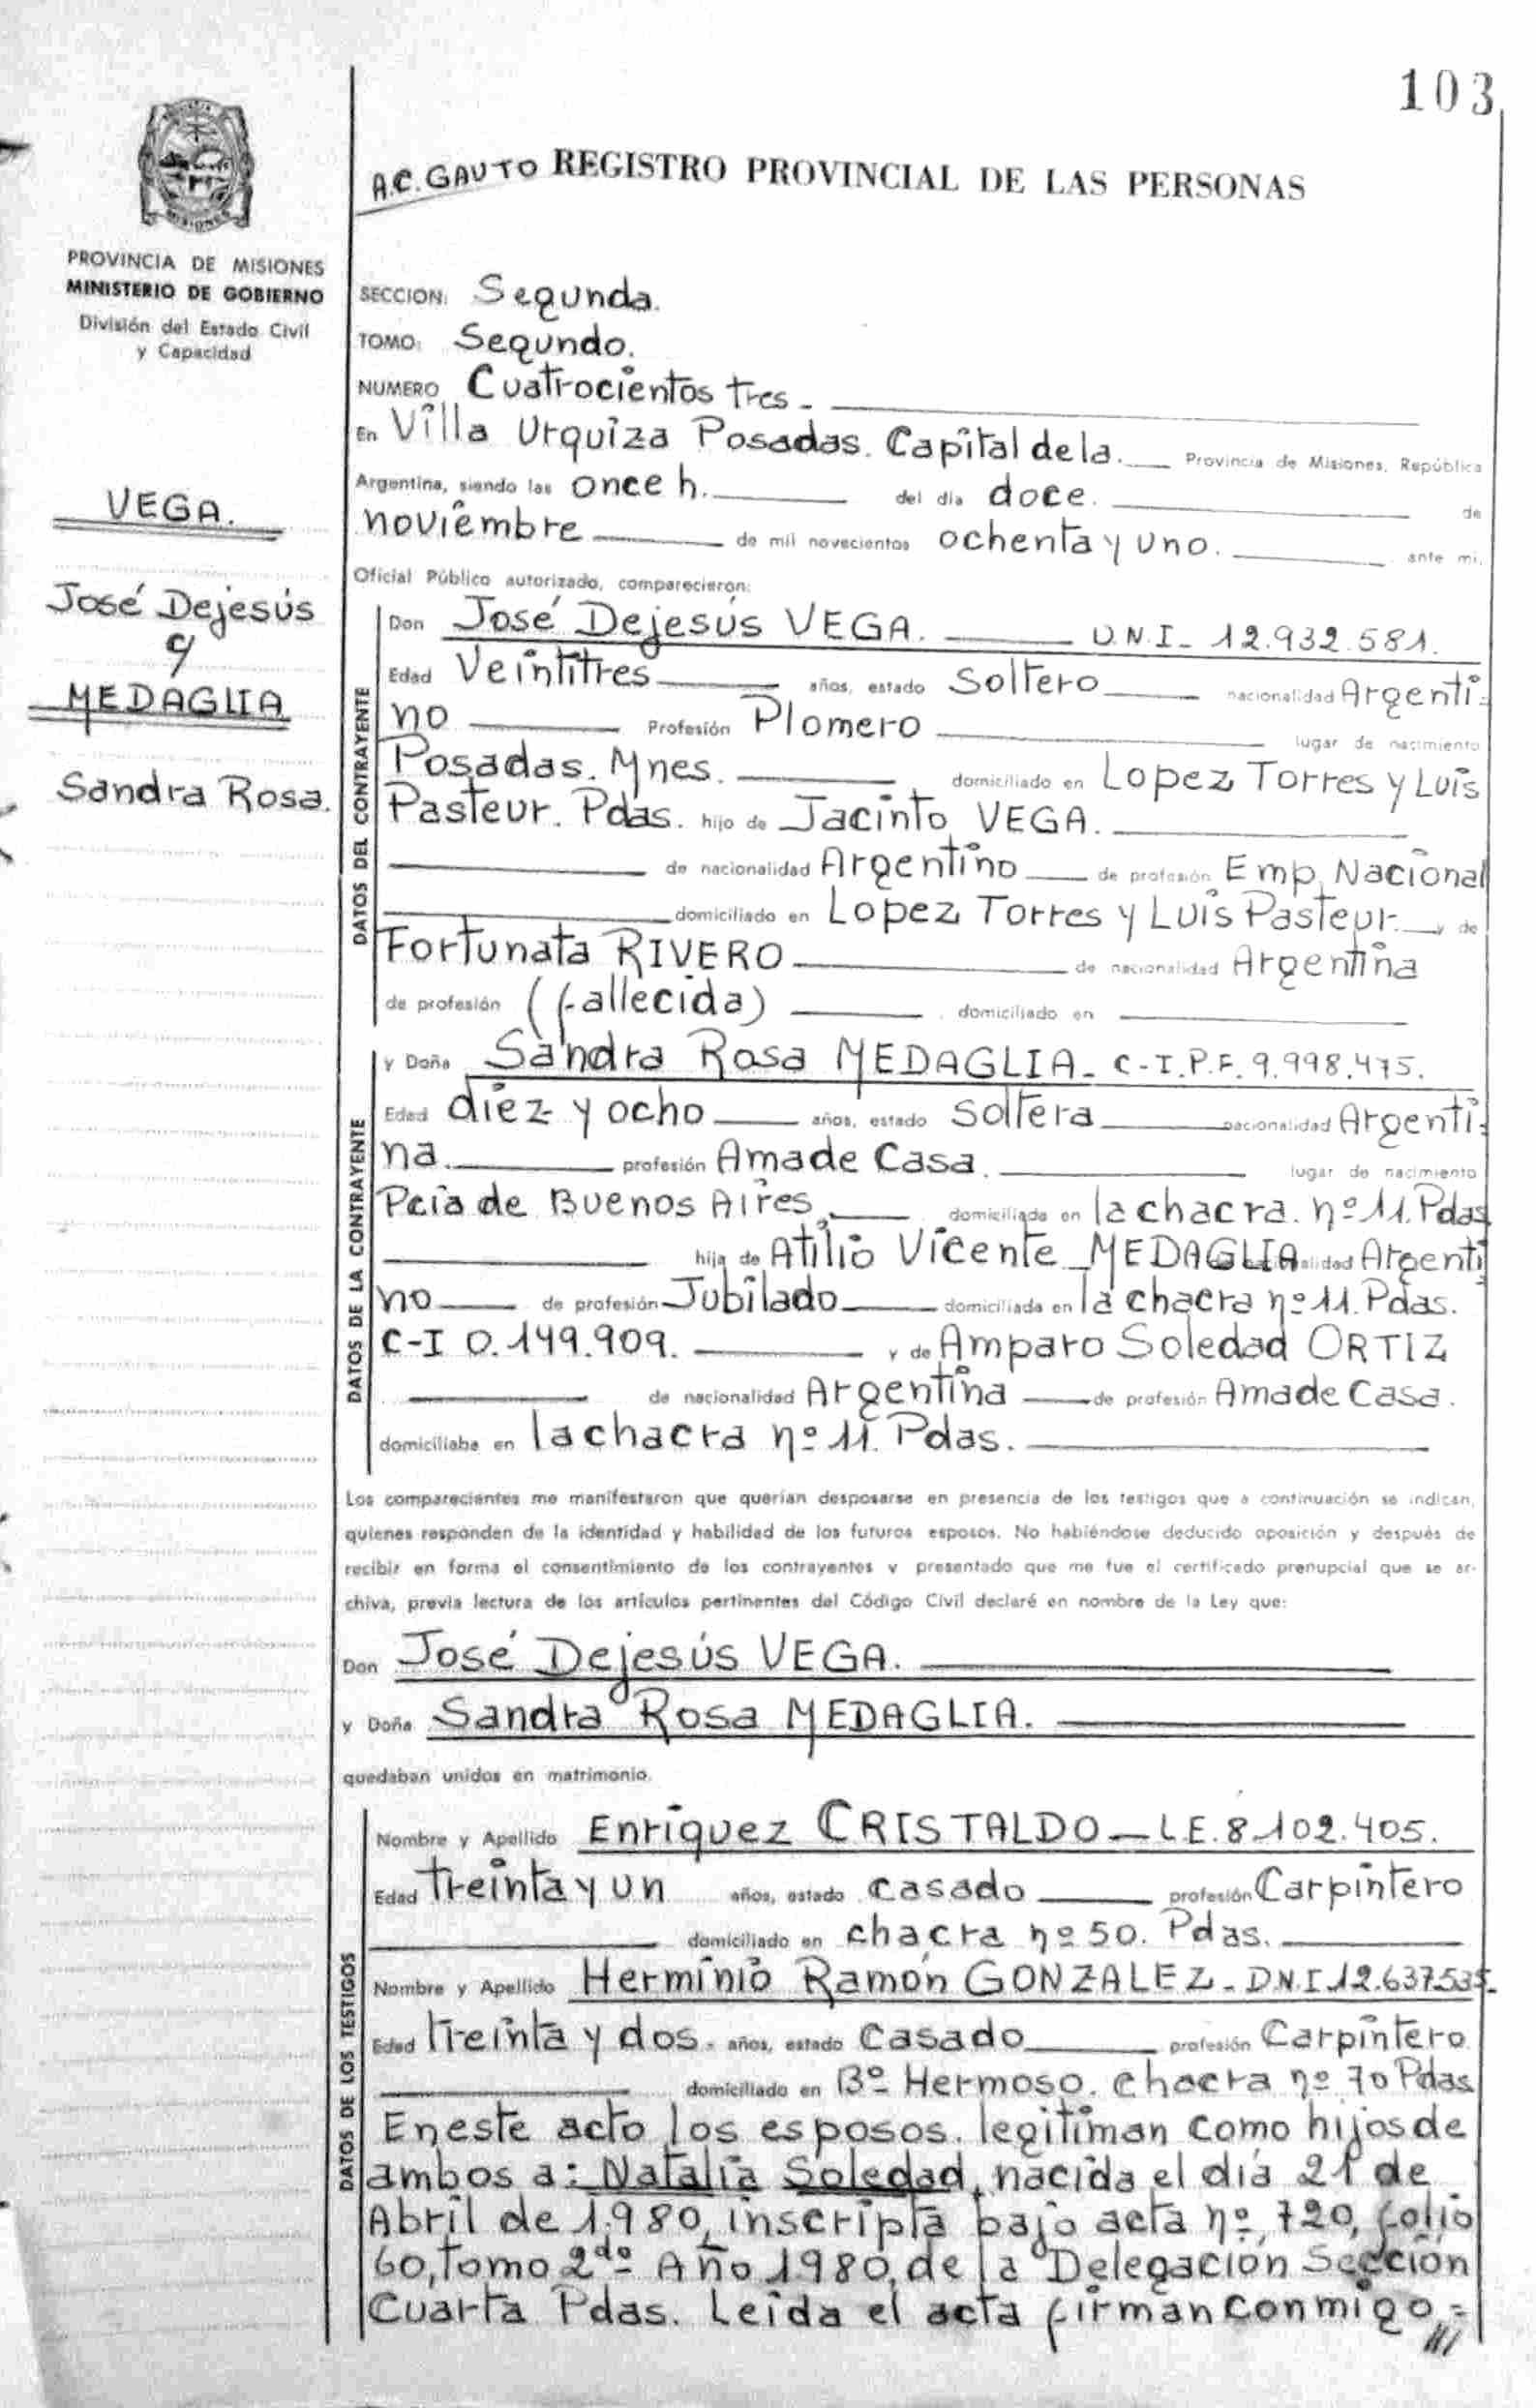 103
A.C. GAUTO REGISTRO PROVINCIAL DE LAS PERSONAS
MISIONES
PROVINCIA DE MISIONES
MINISTERIO DE GOBIERNO
División del Estado Civil
y Capacidad
VEGA.
José Dejesús
y
MEDAGLIA
Sandra Rosa.
SECCION: Segunda.
TOMO: Segundo.
NUMERO Cuatrocientos tres -
En Villa Urquiza Posadas. Capital de la. Provincia de Misiones, República
Argentina, siendo las once h. del dia doce. de
noviembre de mil novecientos ochenta y uno. ante mi,
Oficial Público autorizado, comparecieron:
DATOS DEL CONTRAYENTE
Don José Dejesús VEGA. D.N.I- 12.932.581.
Edad Veintitres años, estado Soltero nacionalidad Argenti-
no Profesión Plomero lugar de nacimiento
Posadas. Mnes. domiciliado en Lopez Torres y Luis
Pasteur. Pdas. hijo de Jacinto VEGA.
de nacionalidad Argentino de profesión Emp. Nacional
domiciliado en Lopez Torres y Luis Pasteur. y de
Fortunata RIVERO de nacionalidad Argentina
de profesión (fallecida) domiciliado en
DATOS DE LA CONTRAYENTE
y Doña Sandra Rosa MEDAGLIA- C-I.P.F. 9.998.475.
Edad diez y ocho años, estado Soltera nacionalidad Argenti-
na. profesión Ama de Casa. lugar de nacimiento
Pcia de Buenos Aires, domiciliada en la chacra. nº 11. Pdas
hija de Atilio Vicente MEDAGLIA Argenti
no de profesión Jubilado domiciliado en la chacra nº 11. Pdas.
C-I 0.149.909. y de Amparo Soledad ORTIZ
de nacionalidad Argentina de profesión Ama de Casa.
domiciliaba en la chacra nº 11. Pdas.
Los comparecientes me manifestaron que querían desposarse en presencia de los testigos que a continuación se indican,
quienes responden de la identidad y habilidad de los futuros esposos. No habiéndose deducido oposición y después de
recibir en forma el consentimiento de los contrayentes y presentado que me fue el certificado prenupcial que se ar-
chiva, previa lectura de los artículos pertinentes del Código Civil declaré en nombre de la Ley que:
Don José Dejesús VEGA.
y Doña Sandra Rosa MEDAGLIA.
quedaban unidos en matrimonio.
DATOS DE LOS TESTIGOS
Nombre y Apellido Enriquez CRISTALDO - L.E. 8.102.405.
Edad treinta y un años, estado casado profesión Carpintero
domiciliado en chacra nº 50. Pdas.
Nombre y Apellido Herminio Ramón GONZALEZ - D.N.I 12.637.535-
Edad treinta y dos. años, estado Casado profesión Carpintero
domiciliado en Bº Hermoso. chacra nº 70 Pdas
En este acto los esposos. legitiman como hijos de
ambos a: Natalia Soledad, nacida el día 21 de
Abril de 1.980, inscripta bajo acta nº, 720, folio
60, Tomo 2do Año 1980, de la Delegación Sección
Cuarta Pdas. Leída el acta firman conmigo,=
///